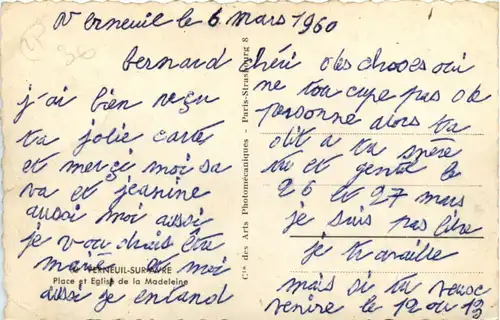 Verneuil le 6 mars 1960
bernard chéri
j'ai bien reçu
ta jolie carte
et merçi moi sa
va et jeanine
aussi moi aussi
je voudrais être
marié et moi
VERNEUIL-SUR-AVRE
Place et Eglise de la Madeleine
aussi je entand
Cie des Arts Photomécaniques - Paris-Strasbourg 8
des choses oui
ne toucupe pas de
personne alors ta
dit a ta mère
tu et gentil le
26 et 27 mars
je suis pas libre
je travaille
mais si tu veuse
venire le 12 ou 13